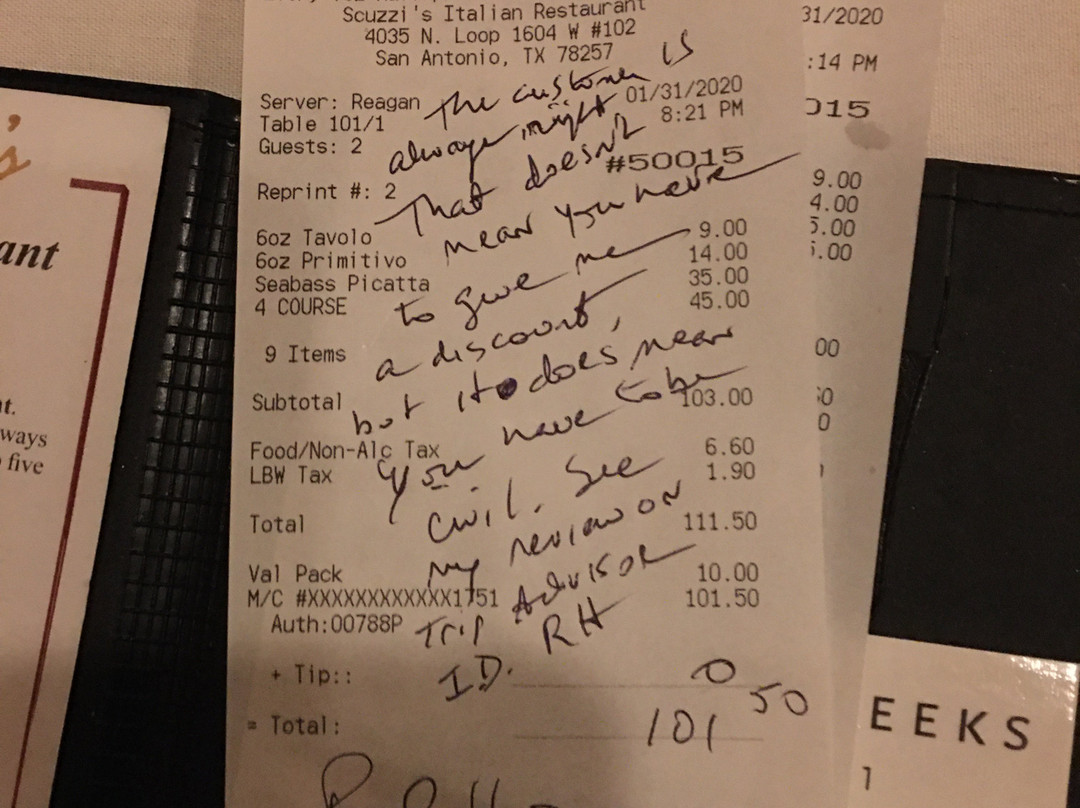 Scuzzi's Italian Restaurant
4035 N. Loop 1604 W #102
San Antonio, TX 78257
Server: Reagan
01/31/2020
Table 101/1
8:21 PM
Guests: 2
#50015
Reprint #: 2
6oz Tavolo 9.00
6oz Primitivo 14.00
Seabass Picatta 35.00
4 COURSE 45.00
9 Items
Subtotal 103.00
Food/Non-Alc Tax 6.60
LBW Tax 1.90
Total 111.50
Val Pack 10.00
M/C #XXXXXXXXXXXX1751 101.50
Auth:00788P
+ Tip:: 0
= Total: 101 50
The customer is
always right
That doesn't
mean you have
to give me
a discount,
but it does mean
you have to be
civil. See
my review on
Trip Advisor
I.D. RH
31/2020
:14 PM
015
9.00
4.00
5.00
.00
00
0
0
ant
t.
ways
five
EEKS
1